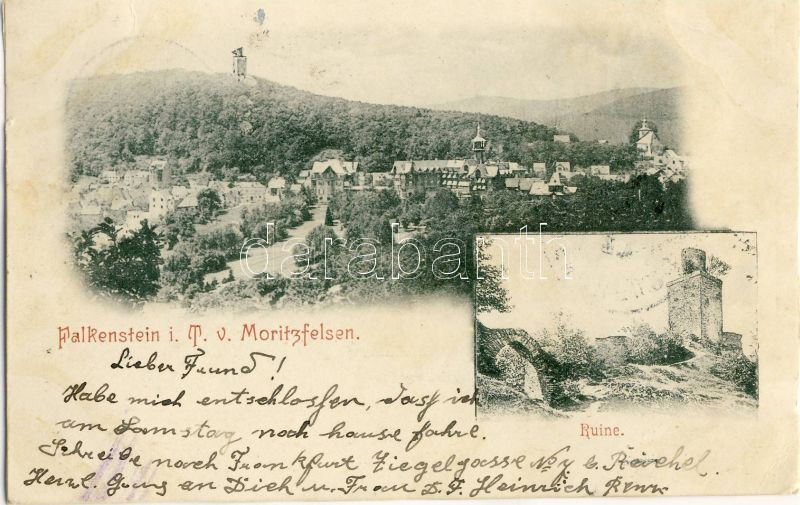 darabanth
Falkenstein i. T. v. Moritzfelsen.
Ruine.
Lieber Freund!
Habe mich entschlossen, dass ich
am Samstag noch hause fahre.
Schreibe nach Frankfurt Ziegelgasse No 7 b.
Herzl. Gruss an Dich u. Frau D. F. Heinrich